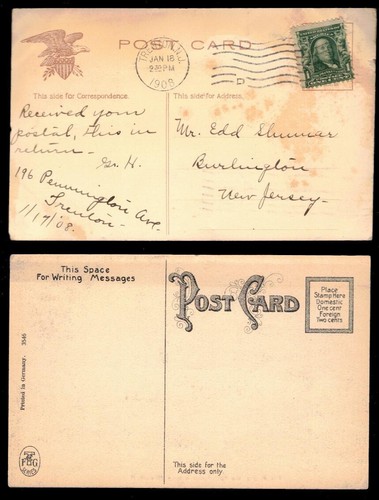 POST CARD
TRENTON, N.J.
JAN 18
2:30 PM
1908
D
This side for Correspondence.
This side for Address.
Received your
postal, this in
return.
Geo. H.
196 Pennington Ave.
Trenton
1/17/08.
Mr. Edd
Burlington
New Jersey.
This Space
For Writing Messages
POST CARD
Place
Stamp Here
Domestic
One cent
Foreign
Two cents
Printed in Germany. 3546
This side for the
Address only